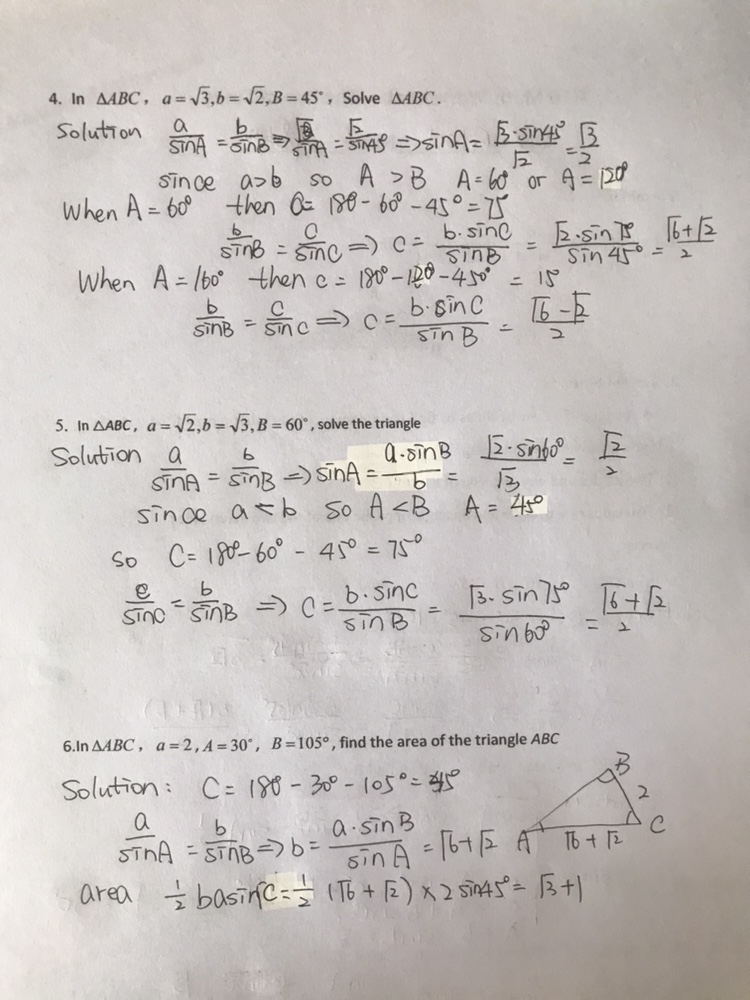 4. In ΔABC, a = √3, b = √2, B = 45°, Solve ΔABC.
Solution a/sinA = b/sinB ⇒ √3/sinA = √2/sin45° ⇒ sinA = √3·sin45°/√2 = √3/2
since a>b so A > B A = 60° or A = 120°
When A = 60° then C = 180° - 60° - 45° = 75°
b/sinB = C/sinC ⇒ C = b·sinC/sinB = √2·sin75°/sin45° = √6+√2/2
When A = 160° then c = 180° - 120° - 450° = 15°
b/sinB = C/sinC ⇒ C = b·sinC/sinB = √6-√2/2
5. In ΔABC, a = √2, b = √3, B = 60°, solve the triangle
Solution a/sinA = b/sinB ⇒ sinA = a·sinB/b = √2·sin60°/√3 = √2/2
since a < b so A < B A = 45°
so C = 180° - 60° - 45° = 75°
c/sinC = b/sinB ⇒ C = b·sinC/sinB = √3·sin75°/sin60° = √6+√2/2
6.In ΔABC, a = 2, A = 30°, B = 105°, find the area of the triangle ABC
Solution: C = 180° - 30° - 105° = 45°
a/sinA = b/sinB ⇒ b = a·sinB/sinA = √6+√2
B
2
A
√6+√2
C
area ½ basinC = ½ (√6+√2) × 2 sin45° = √3+1